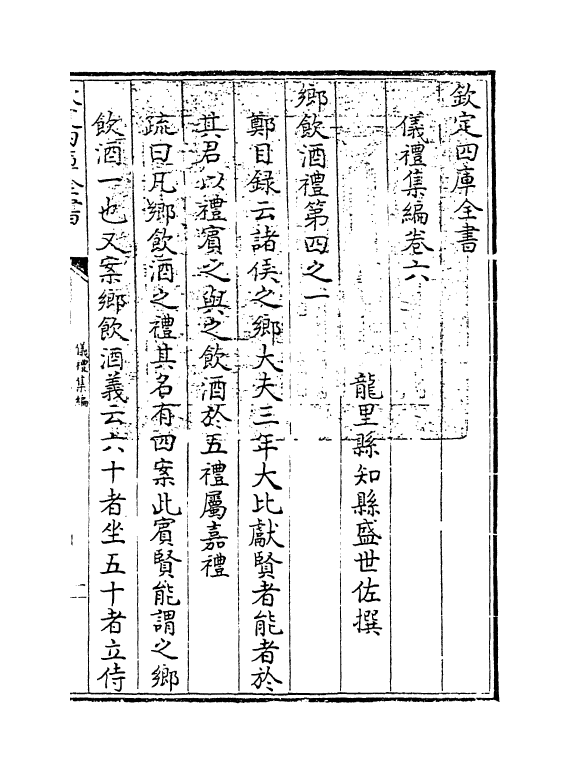 欽定四庫全書
儀禮集編卷六
龍里縣知縣盛世佐撰
鄉飲酒禮第四之一
鄭目録云諸侯之鄉大夫三年大比獻賢者能者於
其君以禮賓之與之飲酒於五禮屬嘉禮
疏曰凡鄉飲酒之禮其名有四案此賓賢能謂之鄉
飲酒一也又案鄉飲酒義云六十者坐五十者立侍
儀禮集編